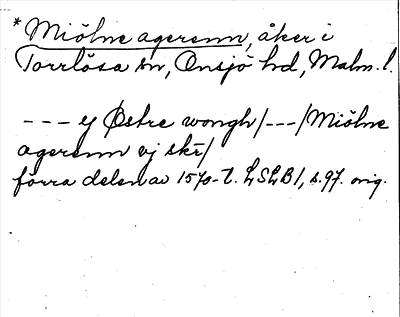 * Miölne agerenn, åker i
Torrlösa sn, Onsjö hd, Malm. l.
--- ej Østre wongh/---/Miölne
agerenn vj skr/
förra delen av 1570-t. LSLB1, s.97. orig.